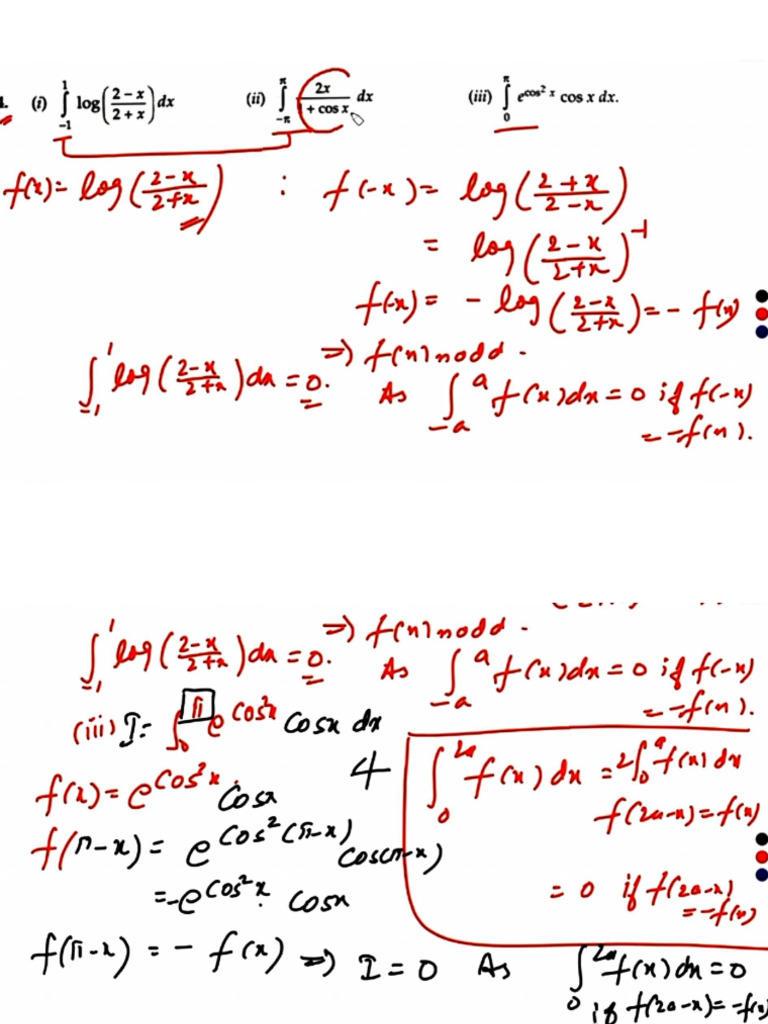 1. (i) ∫₋₁¹ log((2 − x)/(2 + x)) dx (ii) ∫₋π^π 2x/(1 + cos x) dx (iii) ∫₀^π e^(cos² x) cos x dx.
f(x) = log((2−x)/(2+x)) : f(−x) = log((2+x)/(2−x))
= log((2−x)/(2+x))⁻¹
f(-x) = − log((2−x)/(2+x)) = − f(x)
⇒) f(x) n odd.
∫₋₁¹ log((2−x)/(2+x)) dx = 0. As ∫₋ₐᵃ f(x) dx = 0 if f(−x)
= −f(x).
⇒) f(x) n odd.
∫₋₁¹ log((2−x)/(2+x)) dx = 0. As ∫₋ₐᵃ f(x) dx = 0 if f(−x)
= −f(x).
(iii) I = ∫₀^π e^(cos²x) cosx dx
4
∫₀^2a f(x) dx = 2∫₀ᵃ f(x) dx
f(2a−x) = f(x)
= 0 if f(2a−x)
= −f(x)
f(x) = e^(cos²x). cosx
f(π−x) = e^(cos²(π−x)) cos(π−x)
= −e^(cos²x). cosx
f(π−x) = − f(x) ⇒) I = 0 As ∫₀^2a f(x) dx = 0
if f(2a−x) = −f(x)